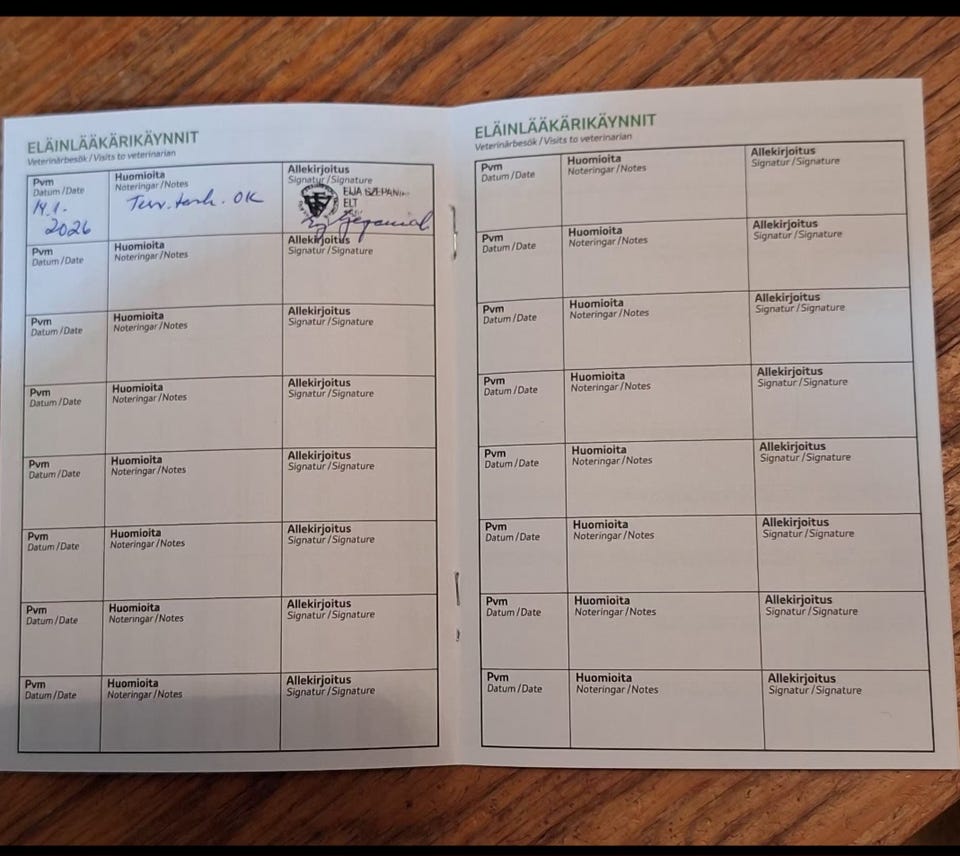 ELÄINLÄÄKÄRIKÄYNNIT
Veterinärbesök / Visits to veterinarian
Pvm
Datum / Date
14.1.
2026
Huomioita
Noteringar / Notes
Terv.tark. OK
Allekirjoitus
Signatur / Signature
EIJA SZEPANI
ELT
Pvm
Datum / Date
Huomioita
Noteringar / Notes
Allekirjoitus
Signatur / Signature
Pvm
Datum / Date
Huomioita
Noteringar / Notes
Allekirjoitus
Signatur / Signature
Pvm
Datum / Date
Huomioita
Noteringar / Notes
Allekirjoitus
Signatur / Signature
Pvm
Datum / Date
Huomioita
Noteringar / Notes
Allekirjoitus
Signatur / Signature
Pvm
Datum / Date
Huomioita
Noteringar / Notes
Allekirjoitus
Signatur / Signature
Pvm
Datum / Date
Huomioita
Noteringar / Notes
Allekirjoitus
Signatur / Signature
Pvm
Datum / Date
Huomioita
Noteringar / Notes
Allekirjoitus
Signatur / Signature
ELÄINLÄÄKÄRIKÄYNNIT
Veterinärbesök / Visits to veterinarian
Pvm
Datum / Date
Huomioita
Noteringar / Notes
Allekirjoitus
Signatur / Signature
Pvm
Datum / Date
Huomioita
Noteringar / Notes
Allekirjoitus
Signatur / Signature
Pvm
Datum / Date
Huomioita
Noteringar / Notes
Allekirjoitus
Signatur / Signature
Pvm
Datum / Date
Huomioita
Noteringar / Notes
Allekirjoitus
Signatur / Signature
Pvm
Datum / Date
Huomioita
Noteringar / Notes
Allekirjoitus
Signatur / Signature
Pvm
Datum / Date
Huomioita
Noteringar / Notes
Allekirjoitus
Signatur / Signature
Pvm
Datum / Date
Huomioita
Noteringar / Notes
Allekirjoitus
Signatur / Signature
Pvm
Datum / Date
Huomioita
Noteringar / Notes
Allekirjoitus
Signatur / Signature